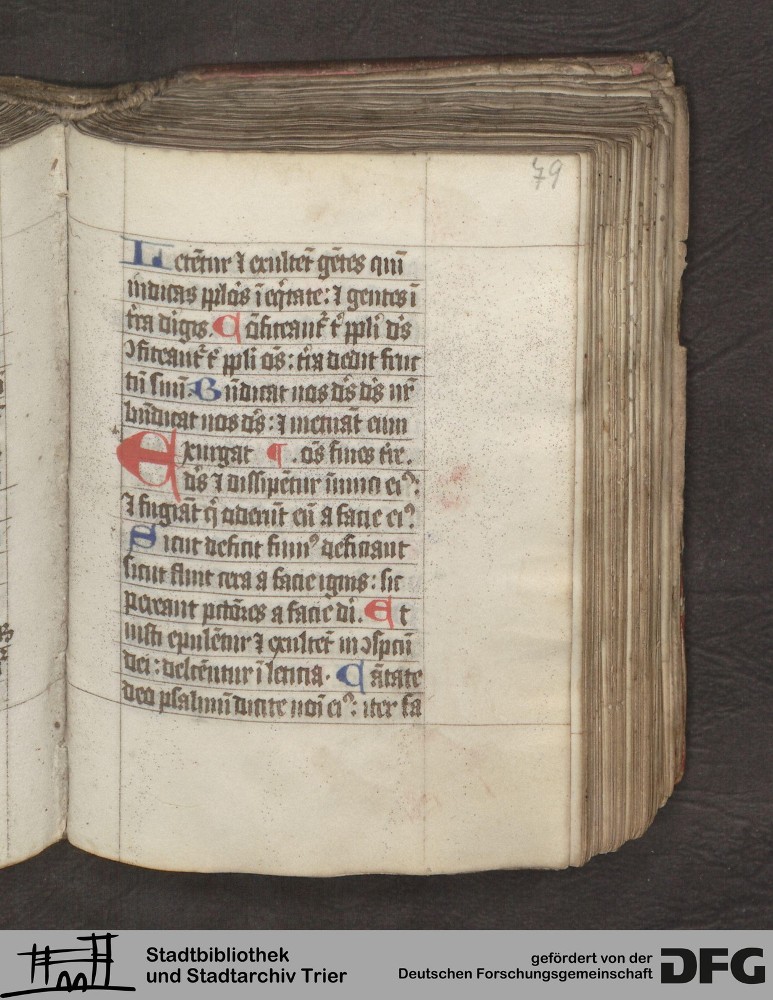 79
Letēntur ⁊ exultet᷑ gētes qm̄
iudicas pplōs ī eq̇tate: ⁊ gentes ī
t̄ra diriges. Cōfiteant᷑ t͛ ppl̄i ds̄
ↄfiteant᷑ t͛ ppl̄i os̄: t̄ra dedit fruc
tū suū. Bn̄dicat nos ds̄ ds̄ nr̄
bn̄dicat nos ds̄: ⁊ metuāt eum
Exurgat ¶ . os̄ fines t̄re.
ds̄ ⁊ dissipētur inimici eiꝰ:
⁊ fugiāt q̇ oderūt eū a facie eiꝰ.
Sicut deficit fumꝰ deficiant
sicut fluit cera a facie ignis: sic
pereant pctōres a facie di. Et
iusti epulētur ⁊ exultet᷑ in ↄspcū
dei: delcēntur ī leticia. Cātate
deo psalmū dicite noī eiꝰ: iter fa
Stadtbibliothek
und Stadtarchiv Trier
gefördert von der
Deutschen Forschungsgemeinschaft DFG